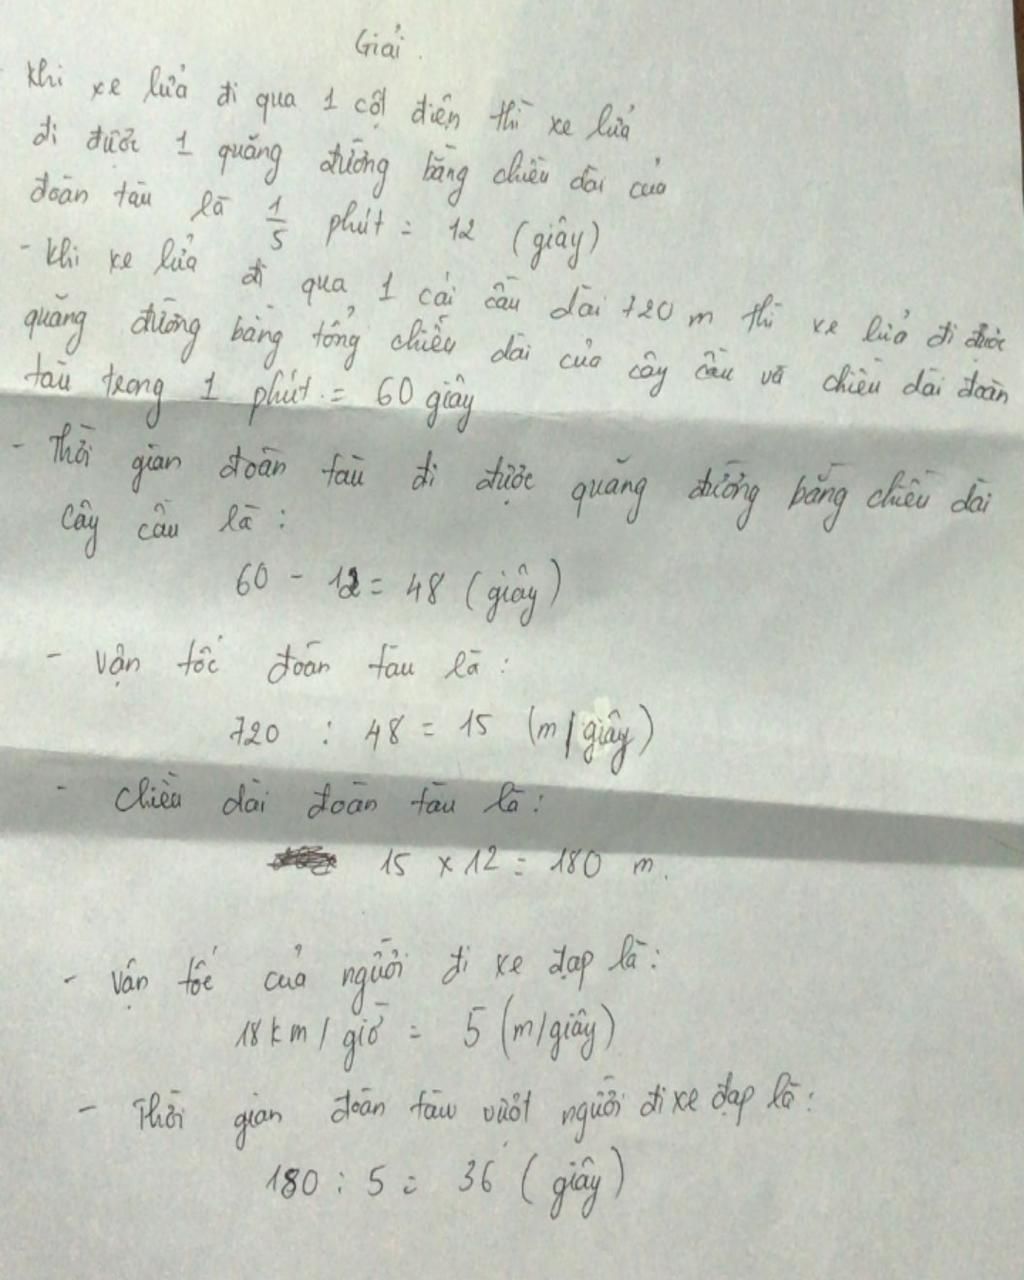 Giải.
Khi xe lửa đi qua 1 cột điện thì xe lửa
đi được 1 quãng đường bằng chiều dài của
đoàn tàu là 1/5 phút = 12 (giây)
- Khi xe lửa đi qua 1 cái cầu dài 720 m thì xe lửa đi được
quãng đường bằng tổng chiều dài của cây cầu và chiều dài đoàn
tàu trong 1 phút = 60 giây
- Thời gian đoàn tàu đi được quãng đường bằng chiều dài
cây cầu là :
60 - 12 = 48 (giây)
- Vận tốc đoàn tàu là :
720 : 48 = 15 (m/giây)
- Chiều dài đoàn tàu là :
15 x 12 = 180 m.
- Vận tốc của người đi xe đạp là :
18 km/giờ = 5 (m/giây)
- Thời gian đoàn tàu vượt người đi xe đạp là :
180 : 5 = 36 (giây)